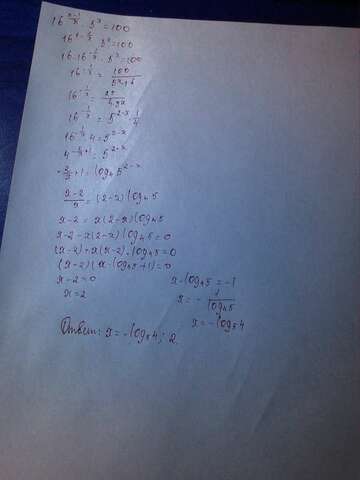 16^{\frac{x-1}{x}} · 5^x = 100
16^{1-\frac{1}{x}} · 5^x = 100
16 · 16^{-\frac{1}{x}} · 5^x = 100
16^{-\frac{1}{x}} = \frac{100}{5^x · 16}
16^{-\frac{1}{x}} = \frac{25}{4 · 5^x}
16^{-\frac{1}{x}} = 5^{2-x} · \frac{1}{4}
16^{-\frac{1}{x}} · 4 = 5^{2-x}
4^{-\frac{2}{x}+1} = 5^{2-x}
-\frac{2}{x} + 1 = log₄ 5^{2-x}
\frac{x-2}{x} = (2-x) log₄ 5
x-2 = x(2-x) log₄ 5
x-2 - x(2-x) log₄ 5 = 0
(x-2) + x(x-2) · log₄ 5 = 0
(x-2)(x · log₄ 5 + 1) = 0
x-2 = 0 x · log₄ 5 = -1
x = 2 x = -\frac{1}{log₄ 5}
x = -log₅ 4
Ответ: x = -log₅ 4; 2